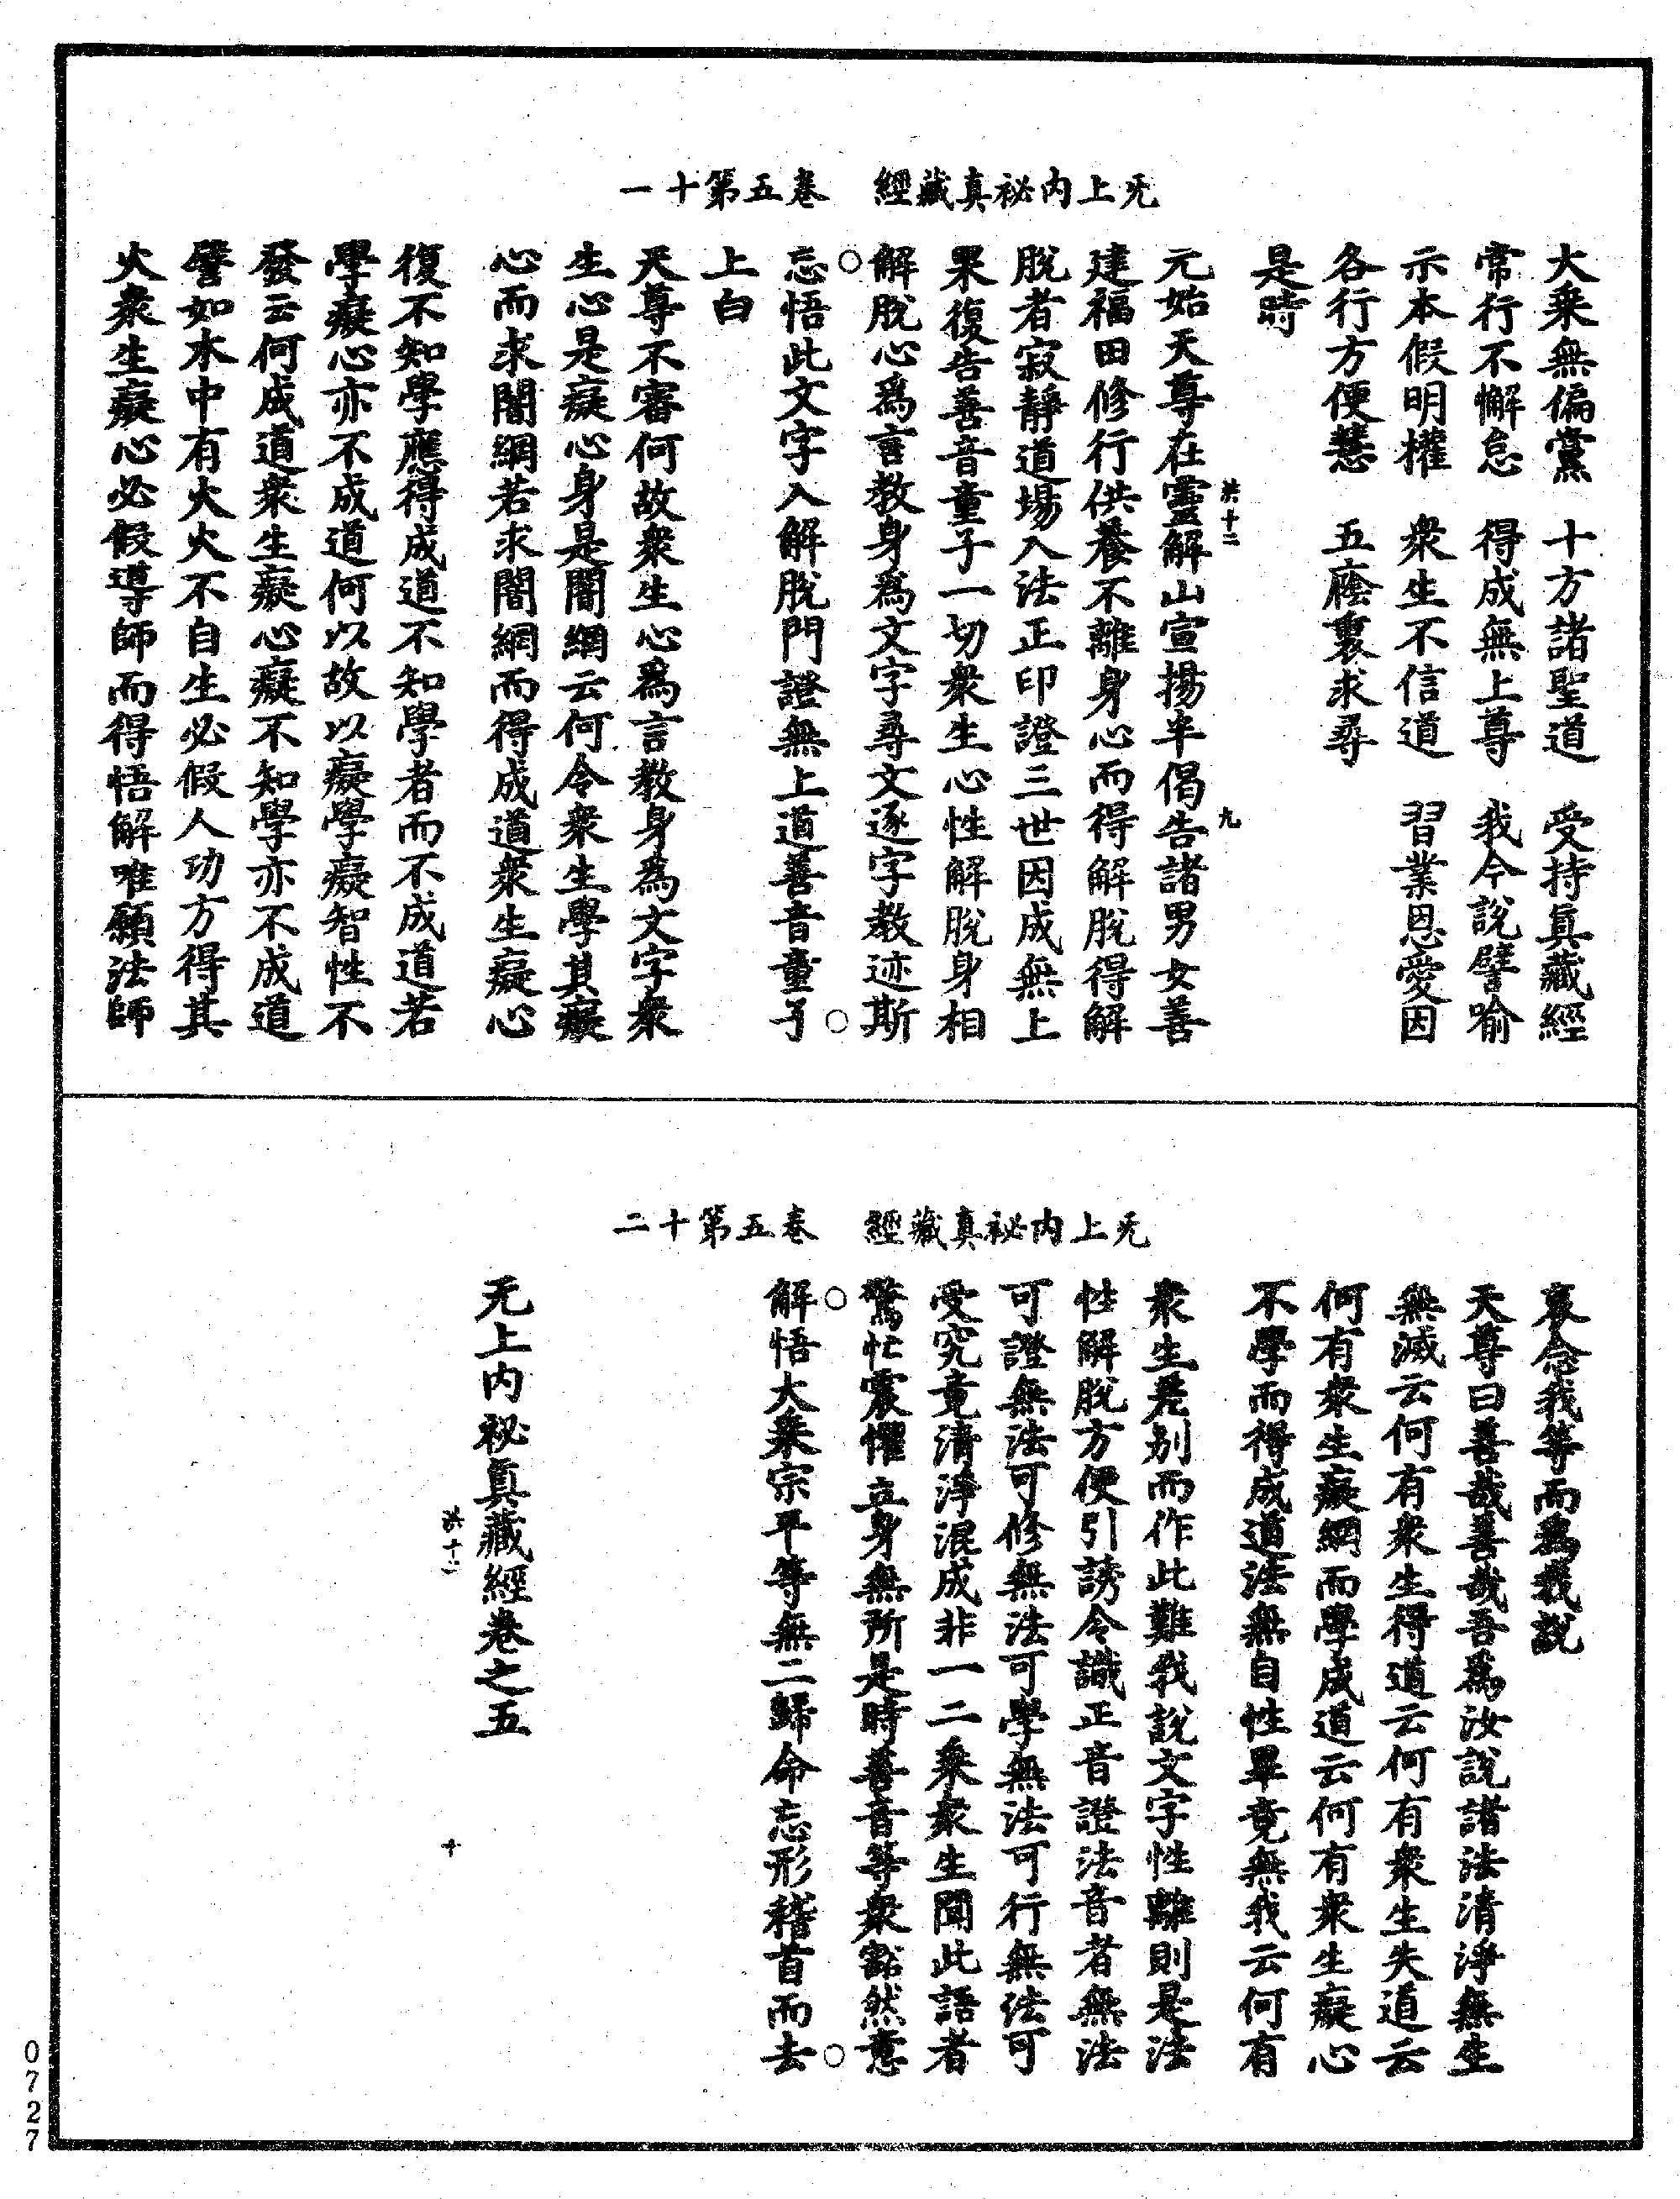 无上內祕真藏經　卷五第十一
大乘無偏黨　十方諸聖道　受持真藏經
常行不懈怠　得成無上尊　我今說譬喻
示本假明權　衆生不信道　習業恩愛因
各行方便慧　五廕裏求尋
是時
洪十二　九
元始天尊在靈解山宣揚半偈告諸男女善
建福田修行供養不離身心而得解脫得解
脫者寂靜道場入法正印證三世因成無上
果復告善音童子一切衆生心性解脫身相
解脫心爲言教身爲文字尋文逐字教迹斯
忘悟此文字入解脫門證無上道善音童子
上白
天尊不審何故衆生心爲言教身爲文字衆
生心是癡心身是闇網云何令衆生學其癡
心而求闇網若求闇網而得成道衆生癡心
復不知學應得成道不知學者而不成道若
學癡心亦不成道何以故以癡學癡智性不
發云何成道衆生癡心癡不知學亦不成道
譬如木中有火火不自生必假人功方得其
火衆生癡心必假導師而得悟解唯願法師
无上內祕真藏經　卷五第十二
哀念我等而爲我說
天尊曰善哉善哉吾爲汝說諸法清淨無生
無滅云何有衆生得道云何有衆生失道云
何有衆生癡網而學成道云何有衆生癡心
不學而得成道法無自性畢竟無我云何有
衆生差別而作此難我說文字性離則是法
性解脫方便引誘令識正音證法音者無法
可證無法可修無法可學無法可行無法可
受究竟清淨混成非一二乘衆生聞此語者
驚忙震懼立身無所是時善音等衆豁然意
解悟大乘宗平等無二歸命忘形稽首而去
无上內祕真藏經卷之五
洪十二　十
0727